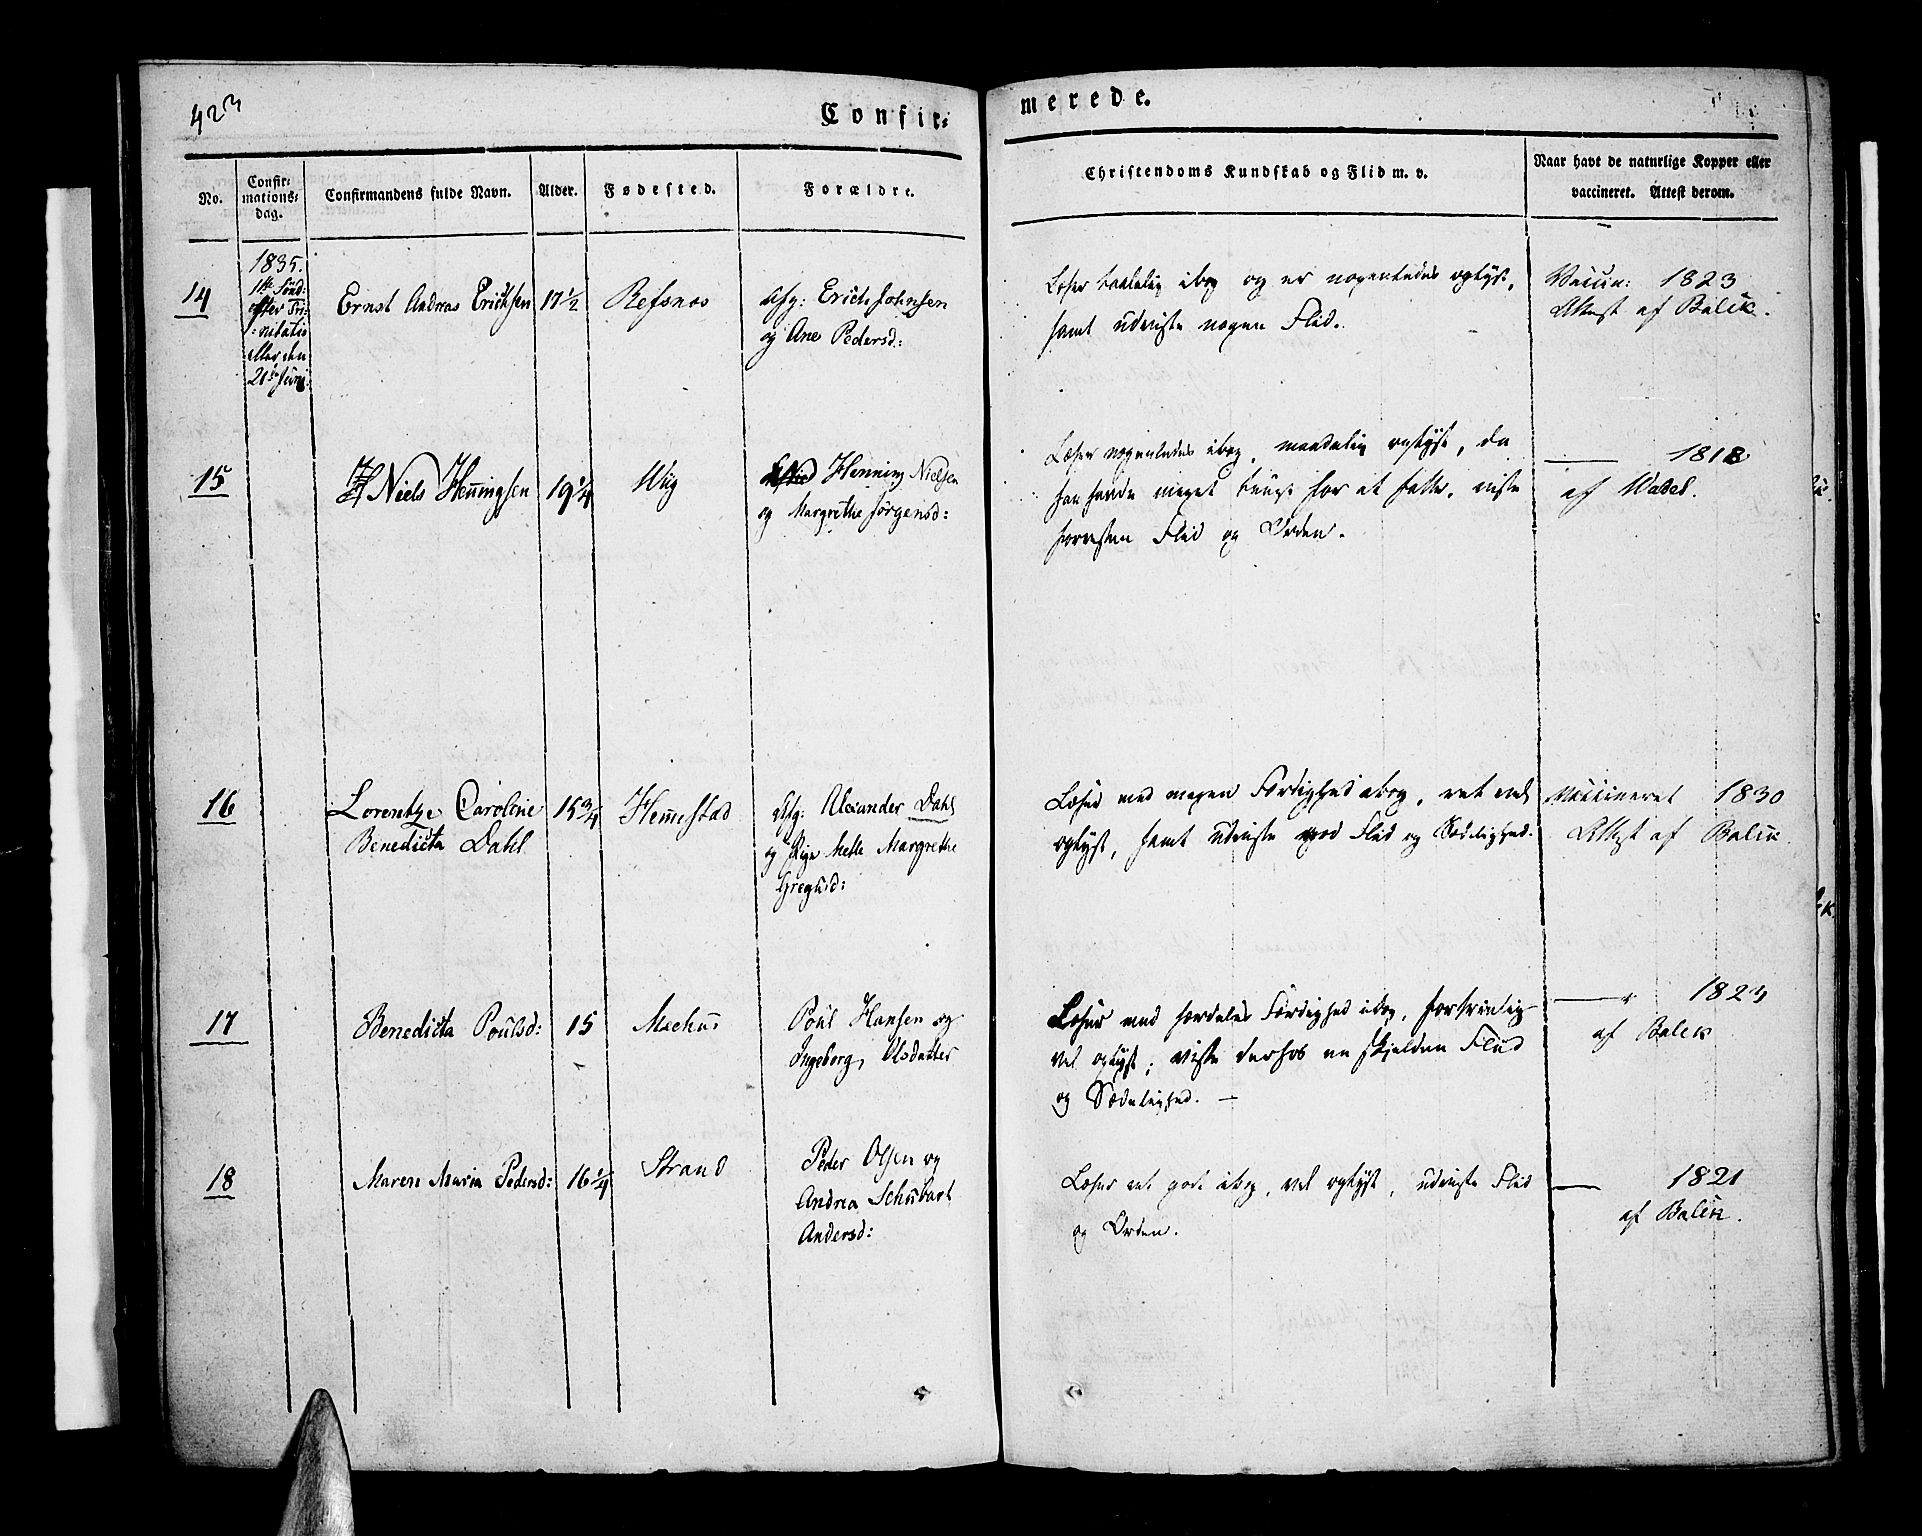 423
Confir-
merede.
No.
Confir-
mations-
dag.
Confirmandens fulde Navn.
Alder.
Fødested.
Forældre.
Christendoms Kundskab og Flid m. v.
Naar havt de naturlige Kopper eller
vaccineret. Attest derom.
14
1835.
1ste Sønd:
efter Tri-
:nitatis
eller den
21de Juni
Ernst Andreas Erichsen
17 1/2
Refsnæs
Afg: Erich Johnsen
og Ane Pedersd:
Læser taalelig i bog og er nogenledes oplyst,
samt udviste nogen Flid.
Vaccin: 1823
Attest af Balck.
15
Niels Henningsen
19 1/4
Wiig
Henning Nielsen
og Margrethe Jørgensd:
Læser nogenledes i bog, maadelig oplyst, da
han havde meget tungt for at fatte, viste
forresten Flid og Orden.
1818
af Wadel.
16
Lorentze Caroline
Benedicta Dahl
15 3/4
Hemestad
Afg: Alexander Dahl
og Pige Mette Margrethe
Gregusd:
Læser med megen Færdighed i bog, ret vel
oplyst, samt udviste god Flid og Sædelighed.
Vaccineret 1830
Attest af Balck.
17
Benedicta Poulsd:
15
Meehus
Poul Hansen og
Ingeborg Olsdatter
Læser med særdeles Færdighed i bog, fortrinlig
vel oplyst; viste derhos en skjelden Flid
og Sædelighed. —
1823
af Balck
18
Maren Maria Pedersd:
16 1/4
Strand
Peder Olsen og
Andrea Schubart
Andersd:
Læser ret godt i bog, vel oplyst, udviste Flid
og Orden.
1821
af Balck.